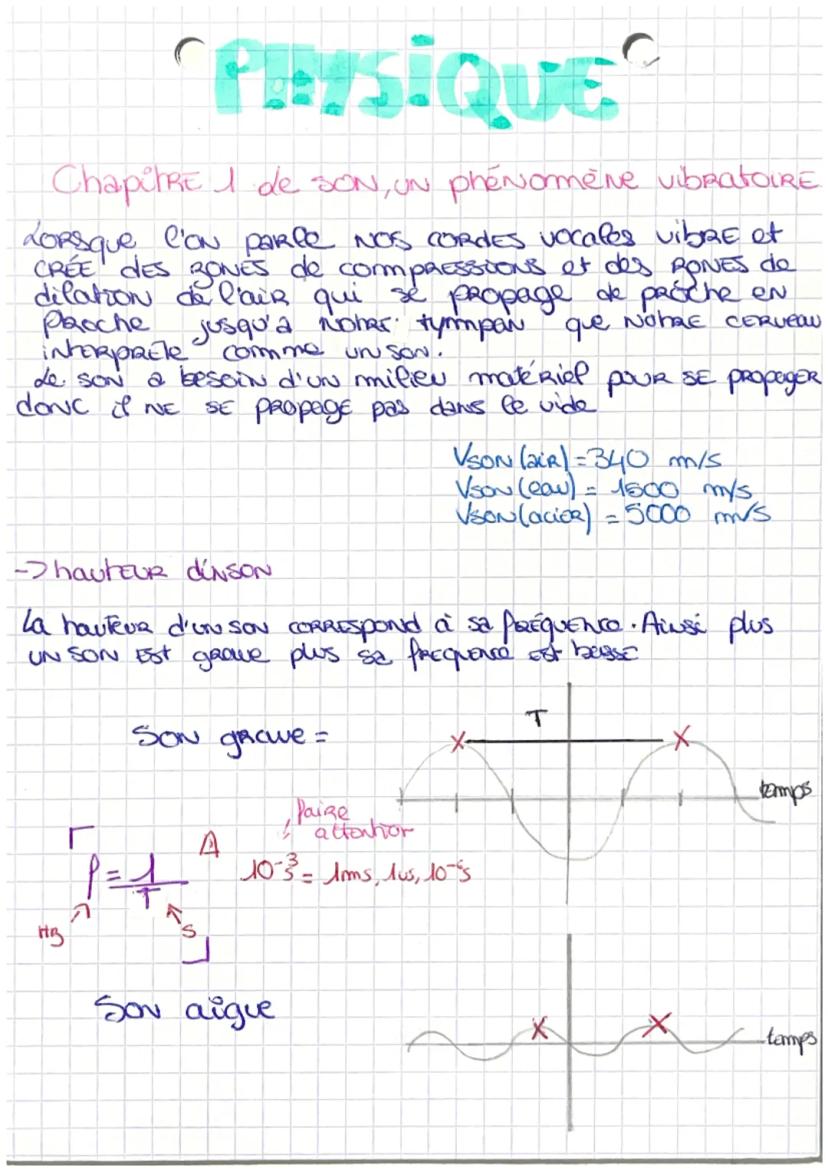 PHYSIQUE
Chapître 1 de son, un phénomène vibratoire
Lorsque l'on parle nos cordes vocales vibre et
crée des zones de compressions et des zones de
dilation de l'air qui se propage de proche en
proche jusqu'a notre tympan que notre cerveau
interprète comme un son.
Le son a besoin d'un milieu matériel pour se propager
donc il ne se propage pas dans le vide
Vson (air) = 340 m/s
Vson (eau) = 1500 m/s
Vson (acier) = 5000 m/s
-> hauteur d'unson
La hauteur d'un son correspond à sa fréquence. Ainsi plus
un son est grave plus sa frequence est basse
T
Son grave =
temps
faire
attention
f = 1
T
10-3s = 1ms,
Hz
s
Son aigue
temps